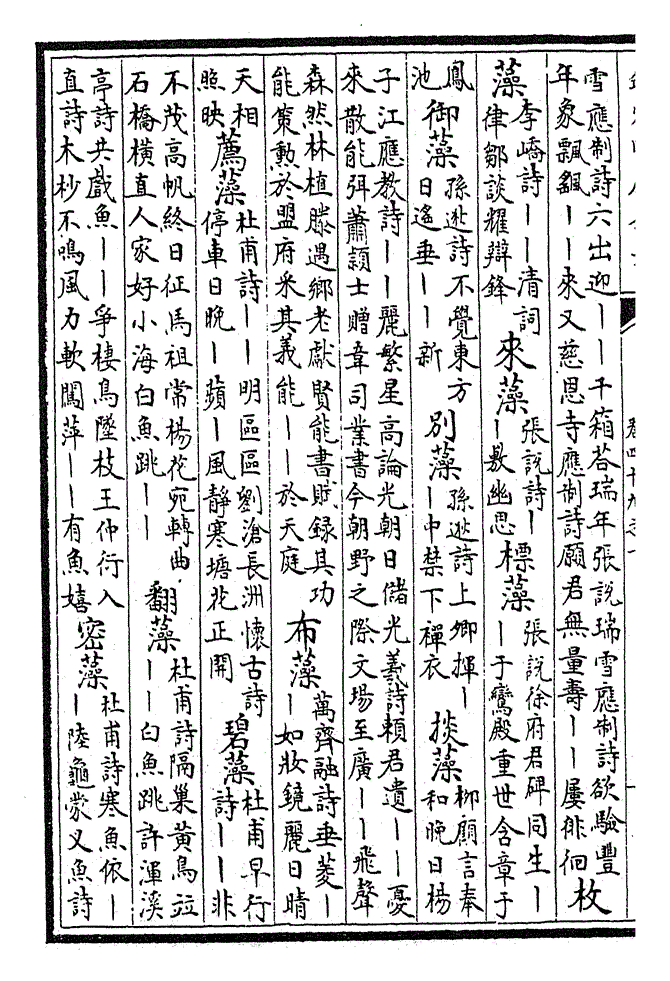 雪應制詩六出迎——千箱荅瑞年張說瑞雪應制詩欲驗豐
年象飄颻——來又慈恩寺應制詩願君無量壽——屢徘徊
枚藻
李嶠詩——清詞
律鄒談耀辯鋒
來藻
張說詩—
—敷幽思
摽藻
張說徐府君碑同生—
—于鸞殿重世含章于
鳳
池
御藻
孫逖詩不覺東方
日遙垂——新
別藻
孫逖詩上卿揮—
—中禁下禪衣
掞藻
柳顧言奉
和晚日楊
子江應教詩——麗繁星高論光朝日儲光羲詩賴君遺——憂
來散能弭蕭穎士贈韋司業書今朝野之際文場至廣——飛聲
森然林植滕遇鄉老獻賢能書賦錄其功
能策勳於盟府采其義能——於天庭
布藻
萬齊融詩垂菱—
—如妝鏡麗日晴
天相
照映
薦藻
杜甫詩——明區區劉滄長洲懷古詩
停車日晚—蘋—風靜寒塘花正開
碧藻
杜甫早行
詩——非
不茂高帆終日征馬祖常楊花宛轉曲
石橋橫直人家好小海白魚跳——
翻藻
杜甫詩隔巢黃鳥竝
——白魚跳許渾溪
亭詩共戲魚——爭棲鳥墜枝王仲行入
直詩木杪不鳴風力軟闖萍——有魚嬉
密藻
杜甫詩寒魚依—
—陸龜蒙叉魚詩